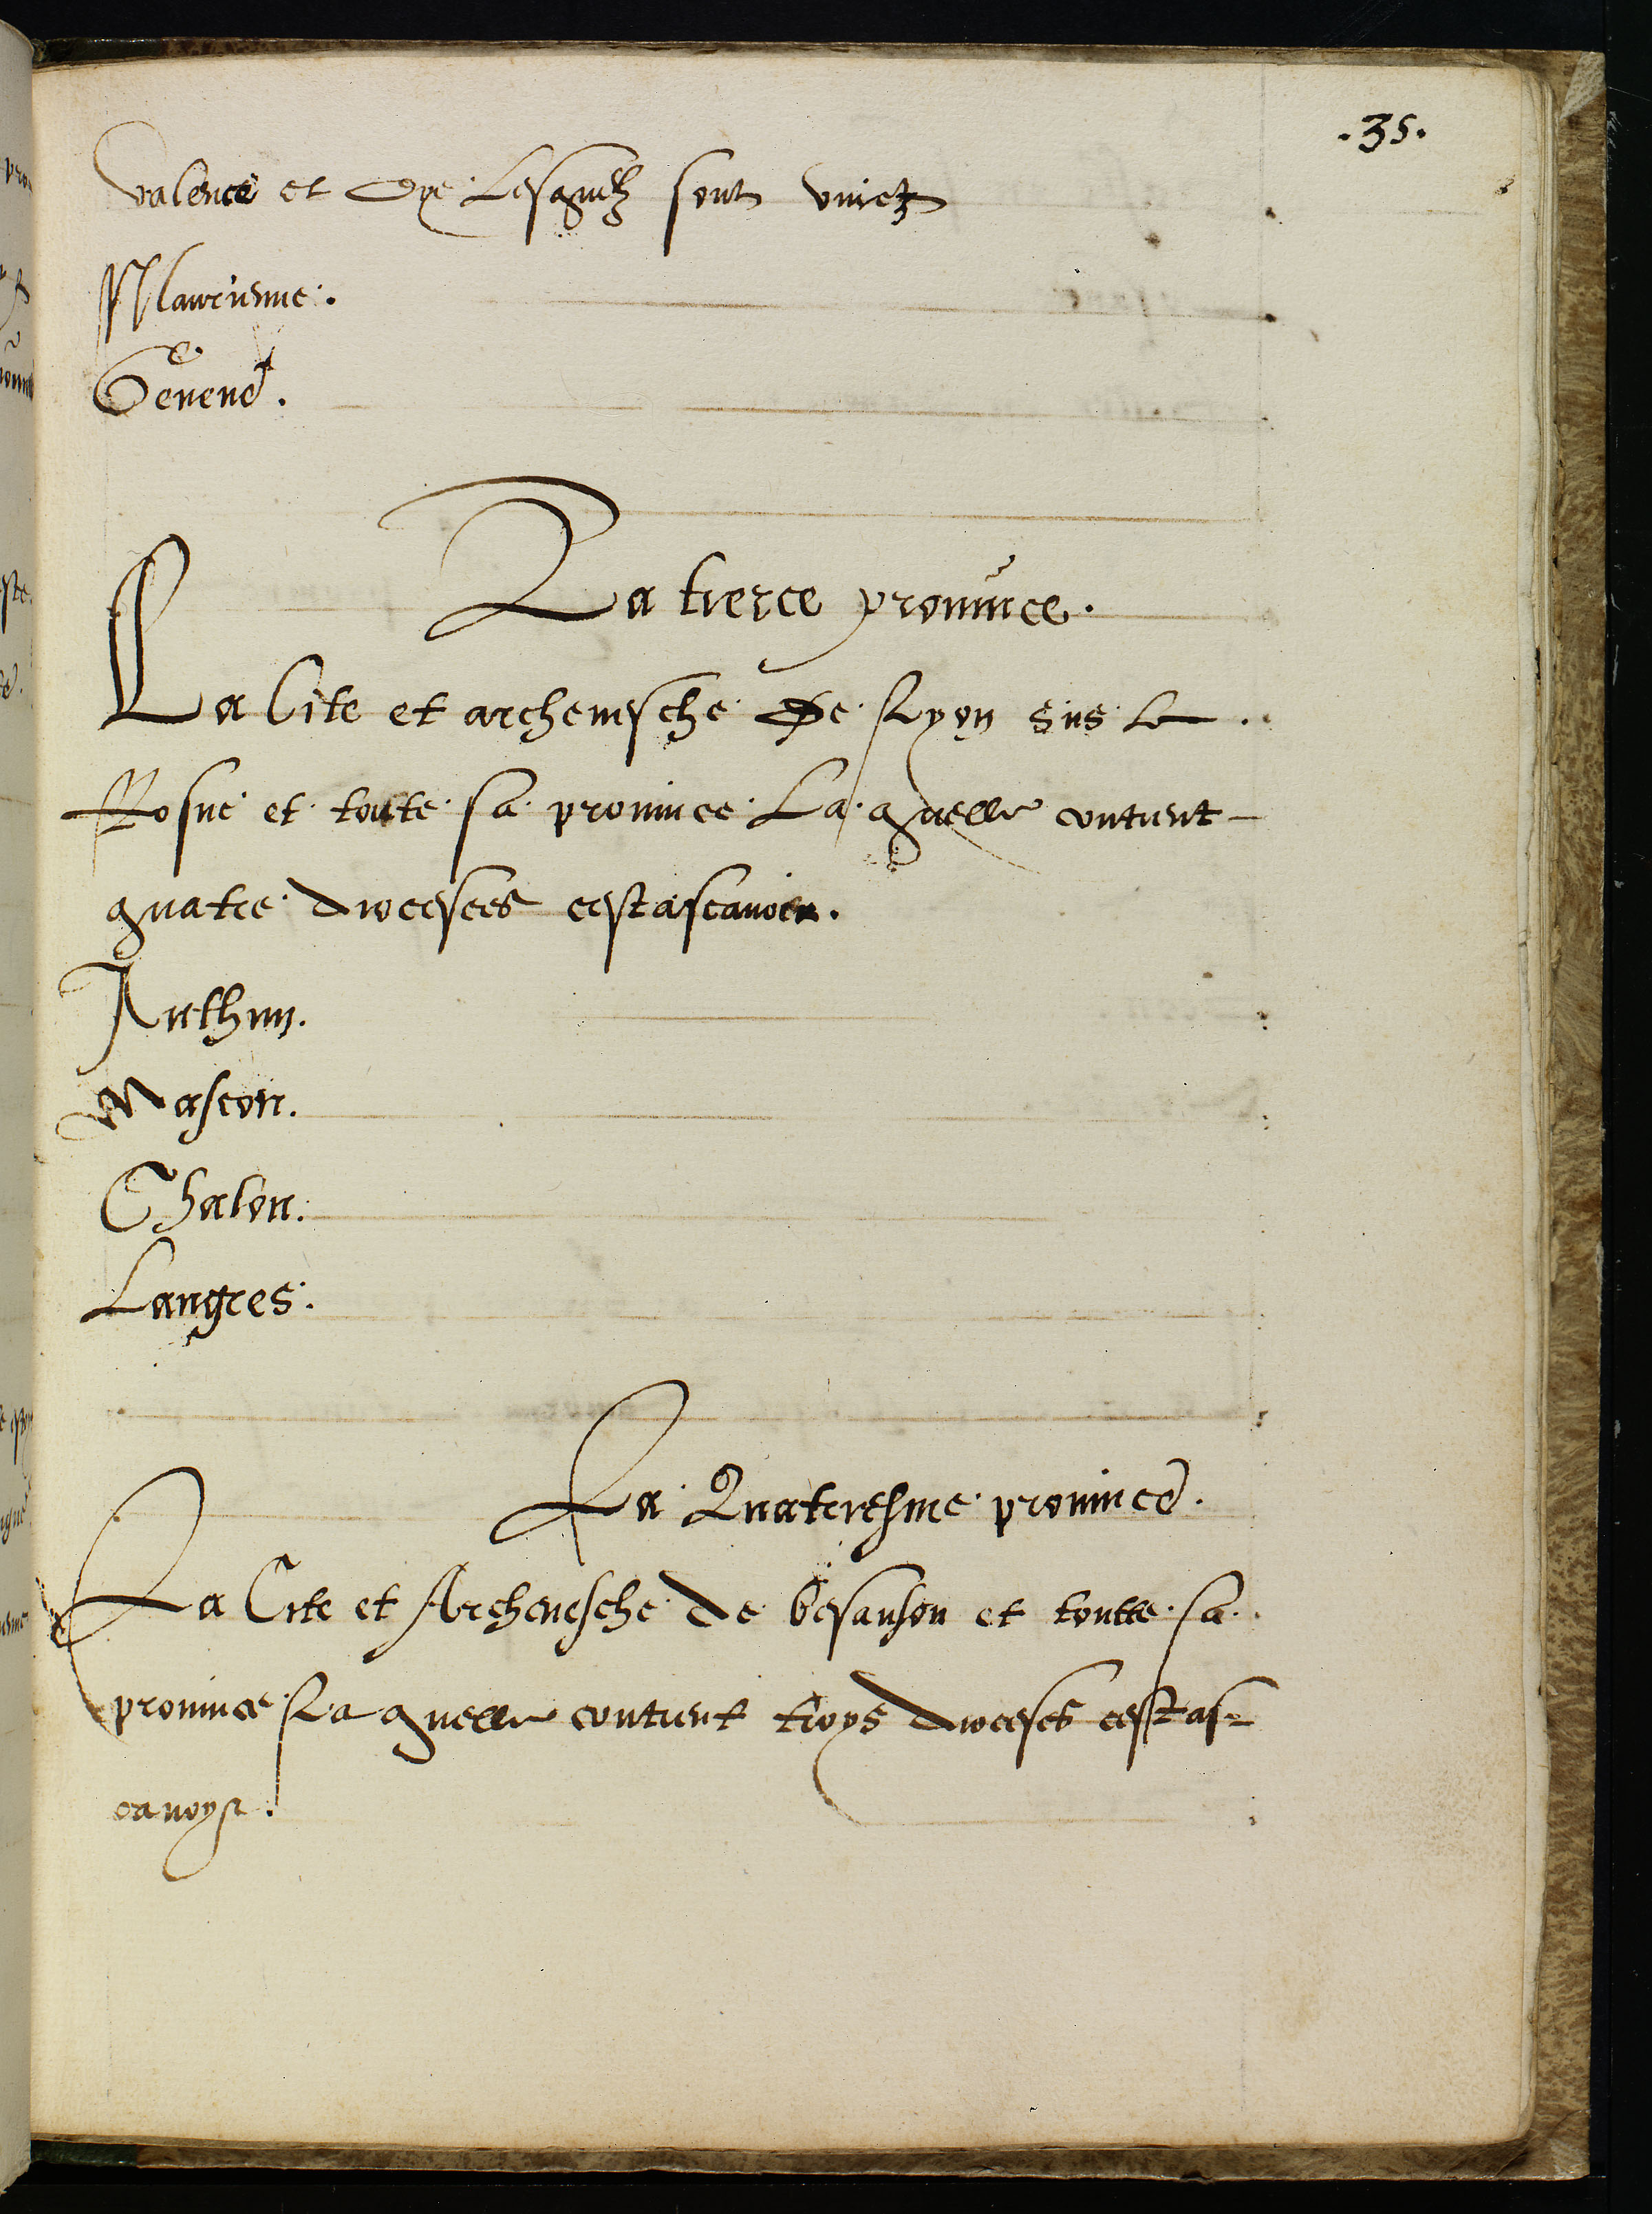 .35.
valence et Dye Lesquelz sont vnietz
Maurienne.
Geneue.
La tierce prouince.
La Cite et archeuesche de Lyon sus le
Rosne et toute sa prouince La quelle contient
quatre dioceses cestascauoir.
Authun.
Mascon.
Chalon.
Langres.
La Quatriesme prouince.
La Cite et Archeuesche de besanson et toutte sa
prouince La quelle contient troys dioceses cestas-
cauoyr.